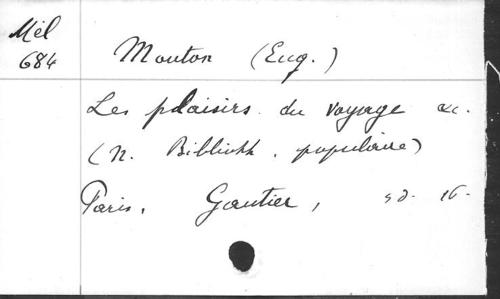 Mél
684
Mouton (Eug.)
Les plaisirs du voyage &c.
(N. Biblioth. populaire)
Paris, Gautier, sd. 16-